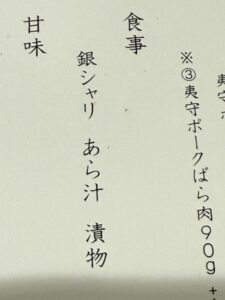 夷守ポ
※③夷守ポークばら肉90g+
食事
銀シャリ　あら汁　漬物
甘味